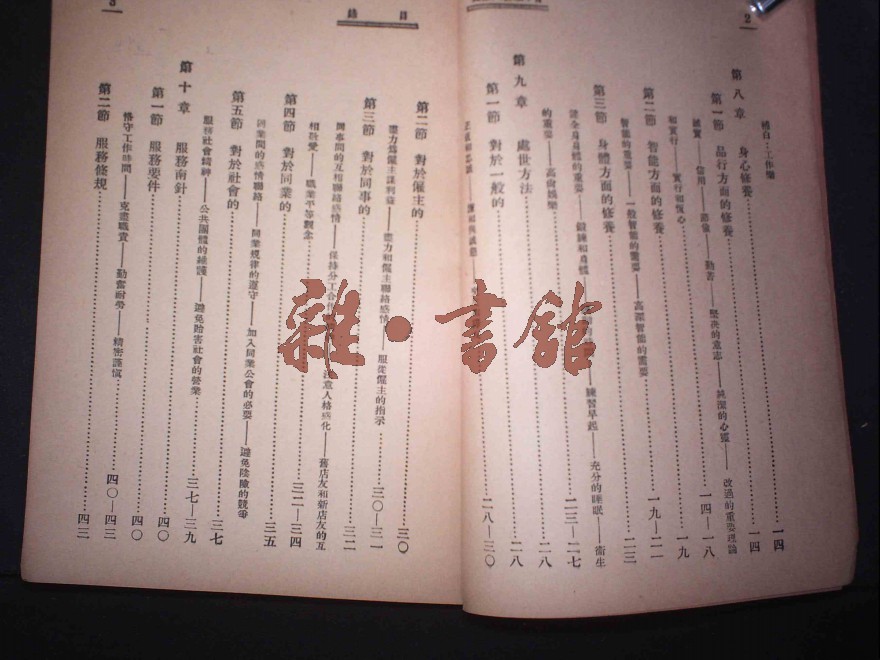 2
補白：工作懶……一四
第八章 身心修養……一四
第一節 品行方面的修養……一四—一八
誠實——信用——節儉——勤苦——堅決的意志——純潔的心靈——改過的重要理論
和實行——實行和恆心……一九
第二節 智能方面的修養……一九—二二
智能的重要——一般智能的重要——高深智能的重要……二三
第三節 身體方面的修養……二三—二七
健全身體的重要——鍛鍊和身體——練習早起——充分的睡眠——衛生
的重要——高尚娛樂……二八
第九章 處世方法……二八
第一節 對於一般的……二八—三〇
目錄
3
第二節 對於僱主的……三〇
盡力為僱主謀利益——盡力和僱主聯絡感情——服從僱主的指示……三〇—三二
第三節 對於同事的……三二
同事間的互相聯絡感情——保持分工合作——注意人格感化——舊店友和新店友的互
相敬愛——職業平等觀念……三二—三四
第四節 對於同業的……三五
同業間的感情聯絡——同業規律的遵守——加入同業公會的必要——避免陰險的競爭
第五節 對於社會的……三七
服務社會精神——公共團體的維護——避免貽害社會的營業……三七—三九
第十章 服務南針……四〇
第一節 服務要件……四〇
恪守工作時間——克盡職責——勤奮耐勞——精密謹慎……四〇—四三
第二節 服務條規……四三
雜·書館